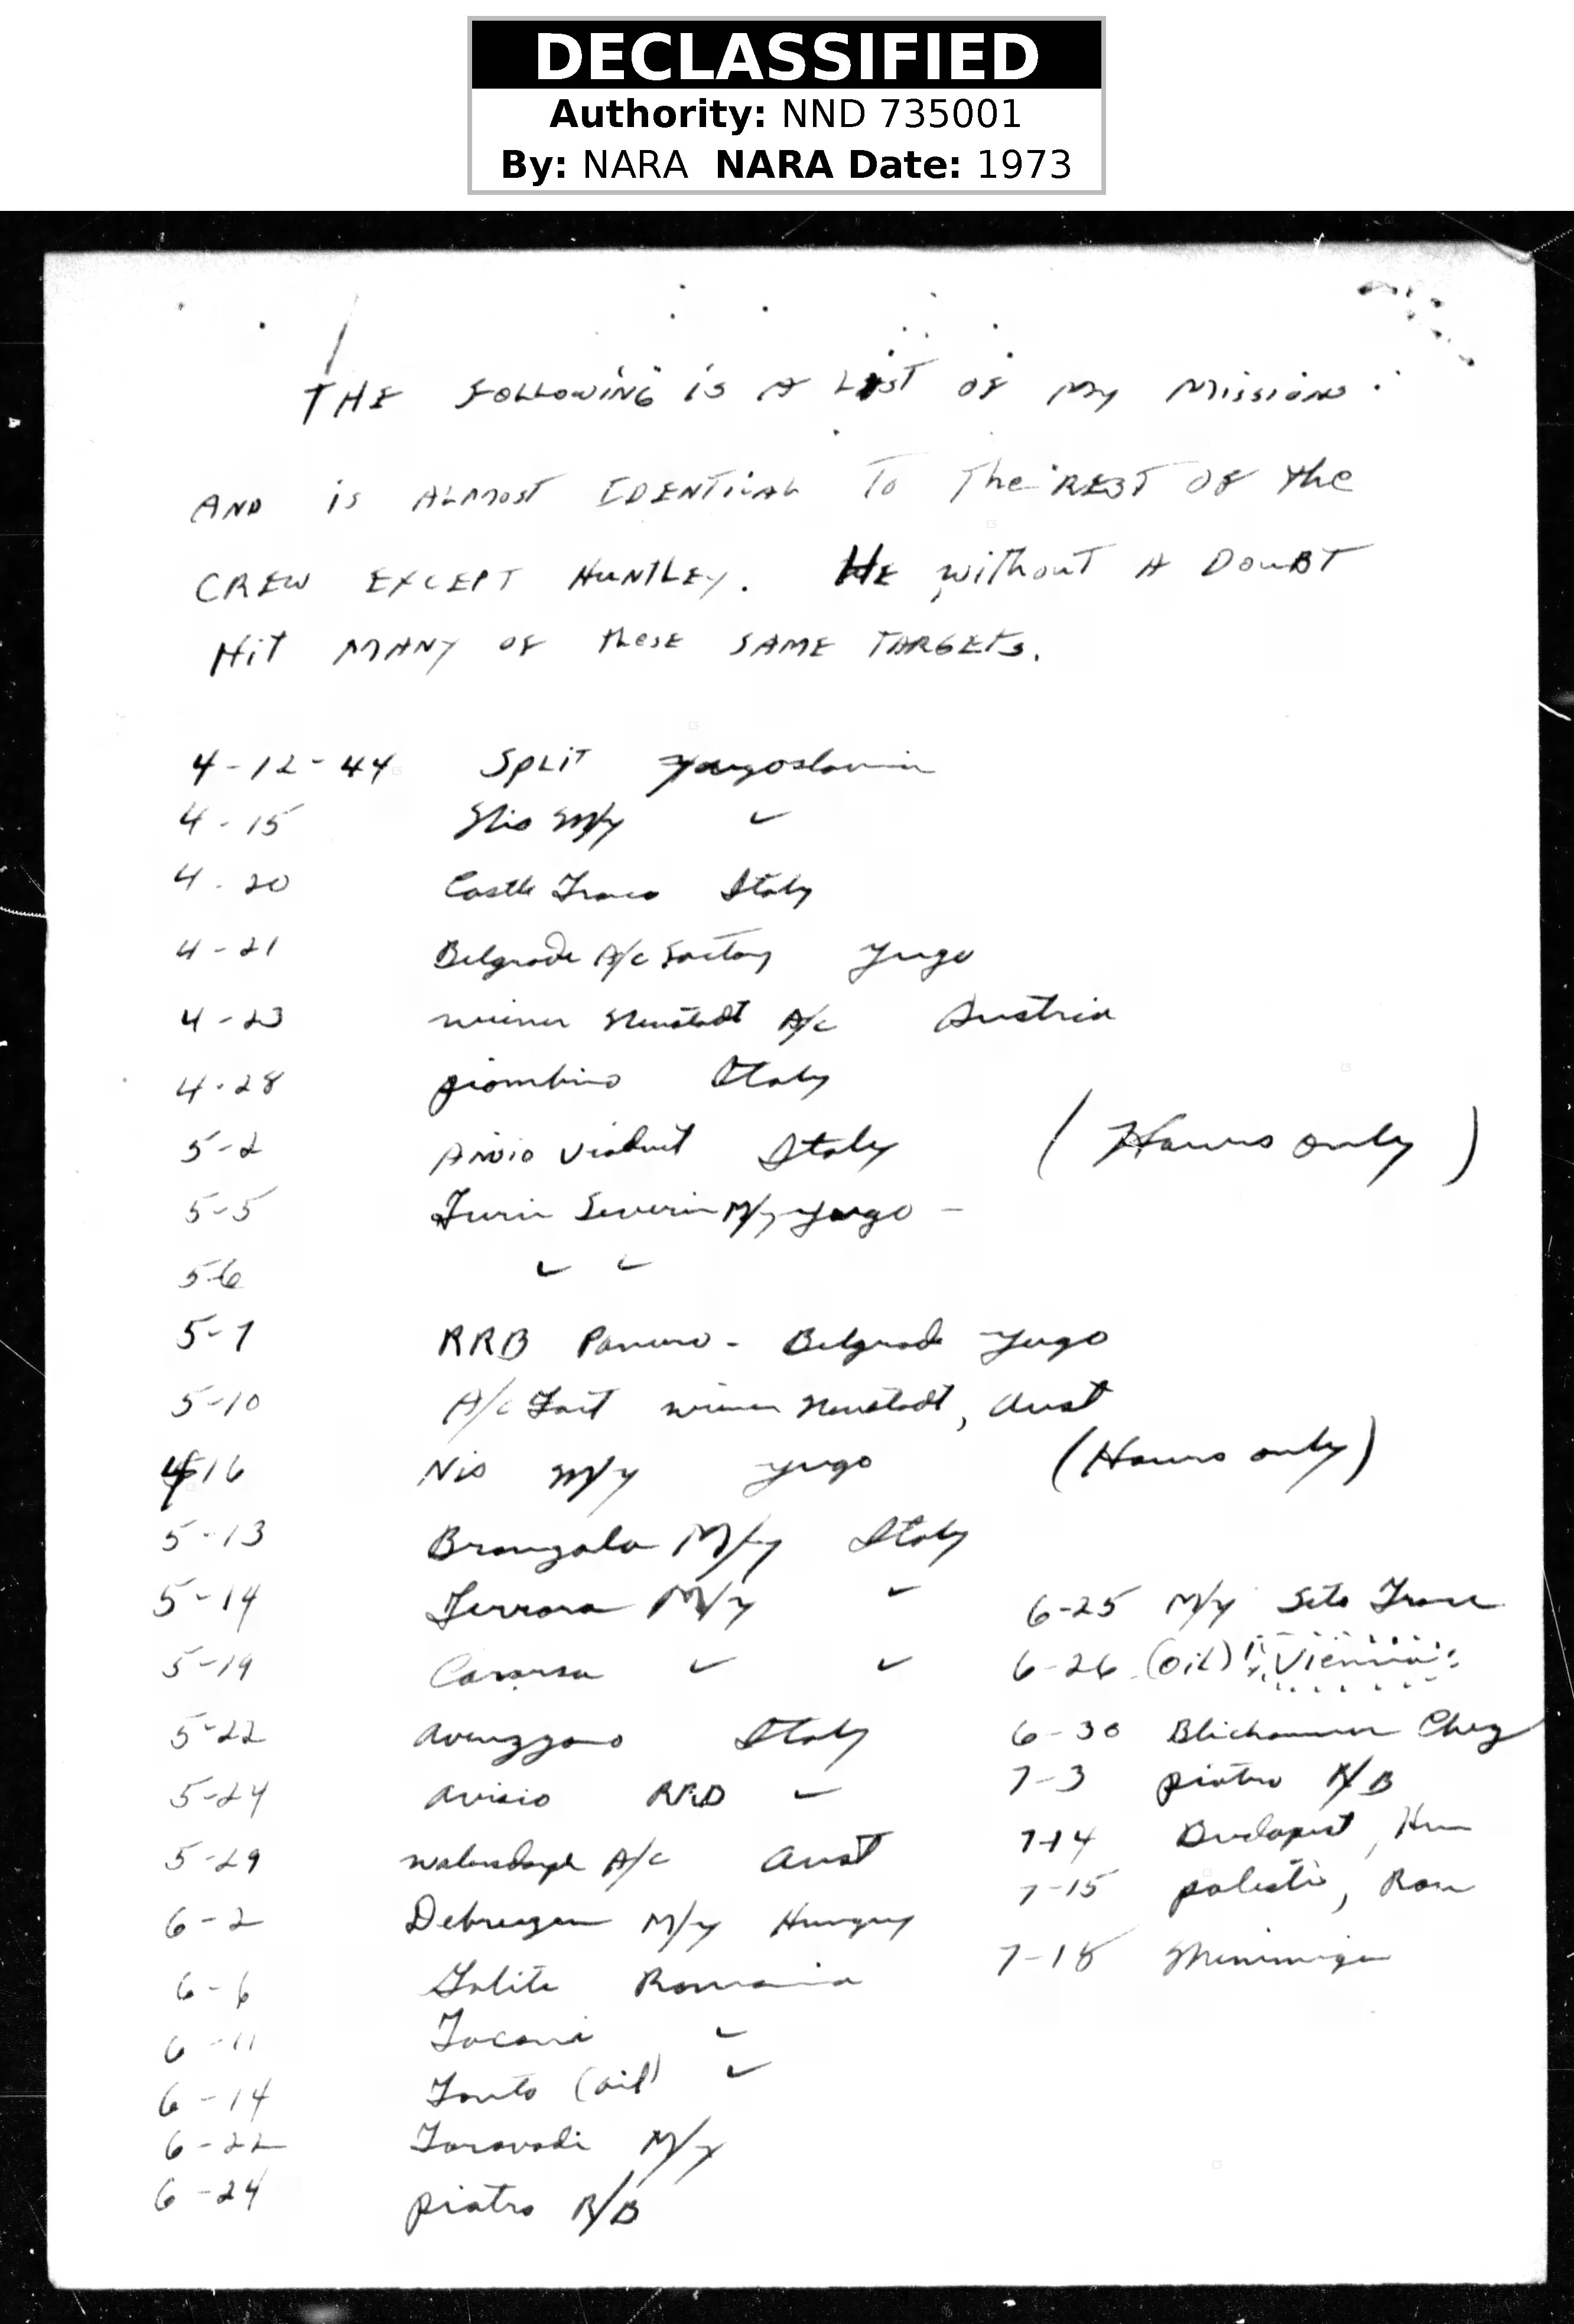 DECLASSIFIED
Authority: NND 735001
By: NARA NARA Date: 1973
THE FOLLOWING IS A LIST OF MY MISSIONS
AND IS ALMOST IDENTICAL TO The REST OF the
CREW EXCEPT HUNTLEY. HE without A DOUBT
HIT MANY OF these SAME TARGETS.
4-12-44 SPLIT Yugoslavia
4-15 Nis M/y ✓
4-20 Castle Franco Italy
4-21 Belgrade A/c Factory Yugo
4-23 weiner Neustadt A/c Austria
4-28 piombino Italy
5-2 Aviso Viaduct Italy (Hours only)
5-5 Turin Severin M/y Yugo -
5-6 ✓ ✓
5-7 RRB - Belgrade Yugo
5-10 A/c Fact weiner Neustadt, Aust
16 Nis M/y Yugo (Hours only)
5-13 M/y Italy
5-14 Ferrara M/y ✓
5-19 ✓ ✓
5-22 Avenzzano Italy
5-24 avisio ✓
5-29 A/c Aust
6-2 Debreyen M/y Hungry
6-6 Galite Romania
6-11 Focani ✓
6-14 (oil) ✓
6-22 M/y
6-24 piatro R/B
6-25 M/y Sete Franc
6-26 (oil) Vienna
6-30 Blichammer Chez
7-3 piatro R/B
7-14 Budapest, Hun
7-15 polesti, Rom
7-18 Memmingen